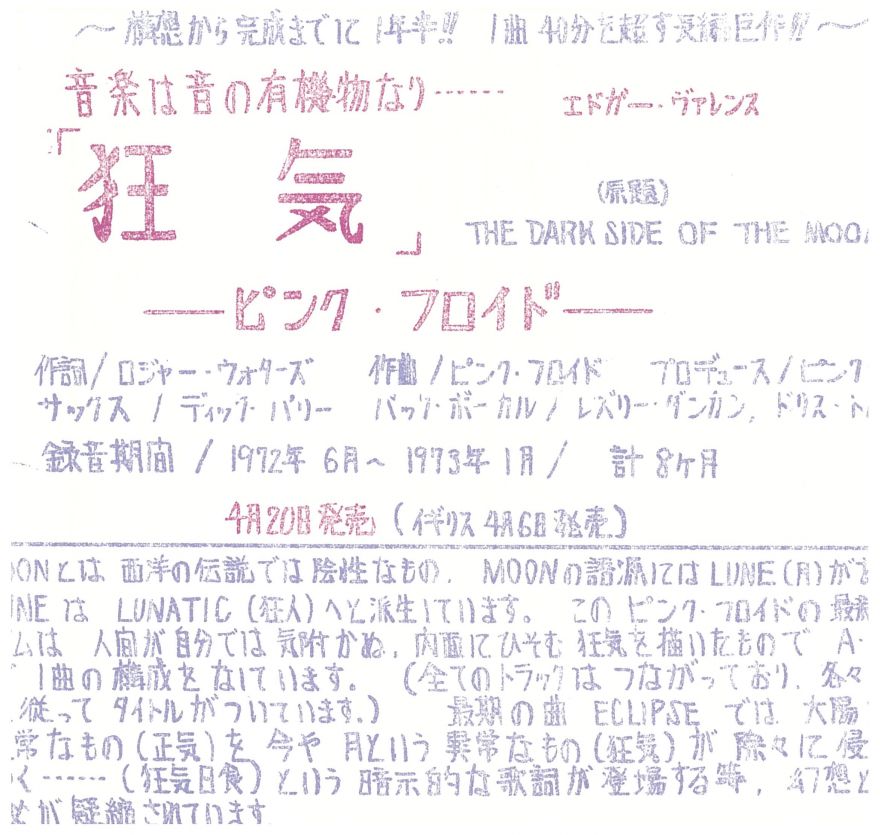 ～構想から完成までに1年半!! 1曲40分を超す長編巨作!!～
音楽は音の有機物なり…… エドガー・ヴァレンス
「狂 気」 (原題)
THE DARK SIDE OF THE MOO
――ピンク・フロイド――
作詞/ロジャー・ウォターズ 作曲/ピンク・フロイド プロデュース/ピンク
サックス/ディック・パリー バック・ボーカル/レズリー・ダンカン, ドリス・ト
録音期間/1972年6月～1973年1月/ 計8ヶ月
4月20日発売 (イギリス4月6日発売)
OONとは 西洋の伝説では陰性なもの. MOONの語源にはLUNE(月)が
NEは LUNATIC(狂人)へと派生しています。 このピンク・フロイドの最新
ムは 人間が自分では気附かぬ、内面にひそむ狂気を描いたもので A・
1曲の構成をなしています。 (全てのトラックはつながっており、各々
従ってタイトルがついています.) 最期の曲 ECLIPSE では太陽
常なもの(正気)を今や月という異常なもの(狂気)が除々に侵
く……(狂気日食)という暗示的な歌詞が登場する等,幻想と
めが凝縮されています